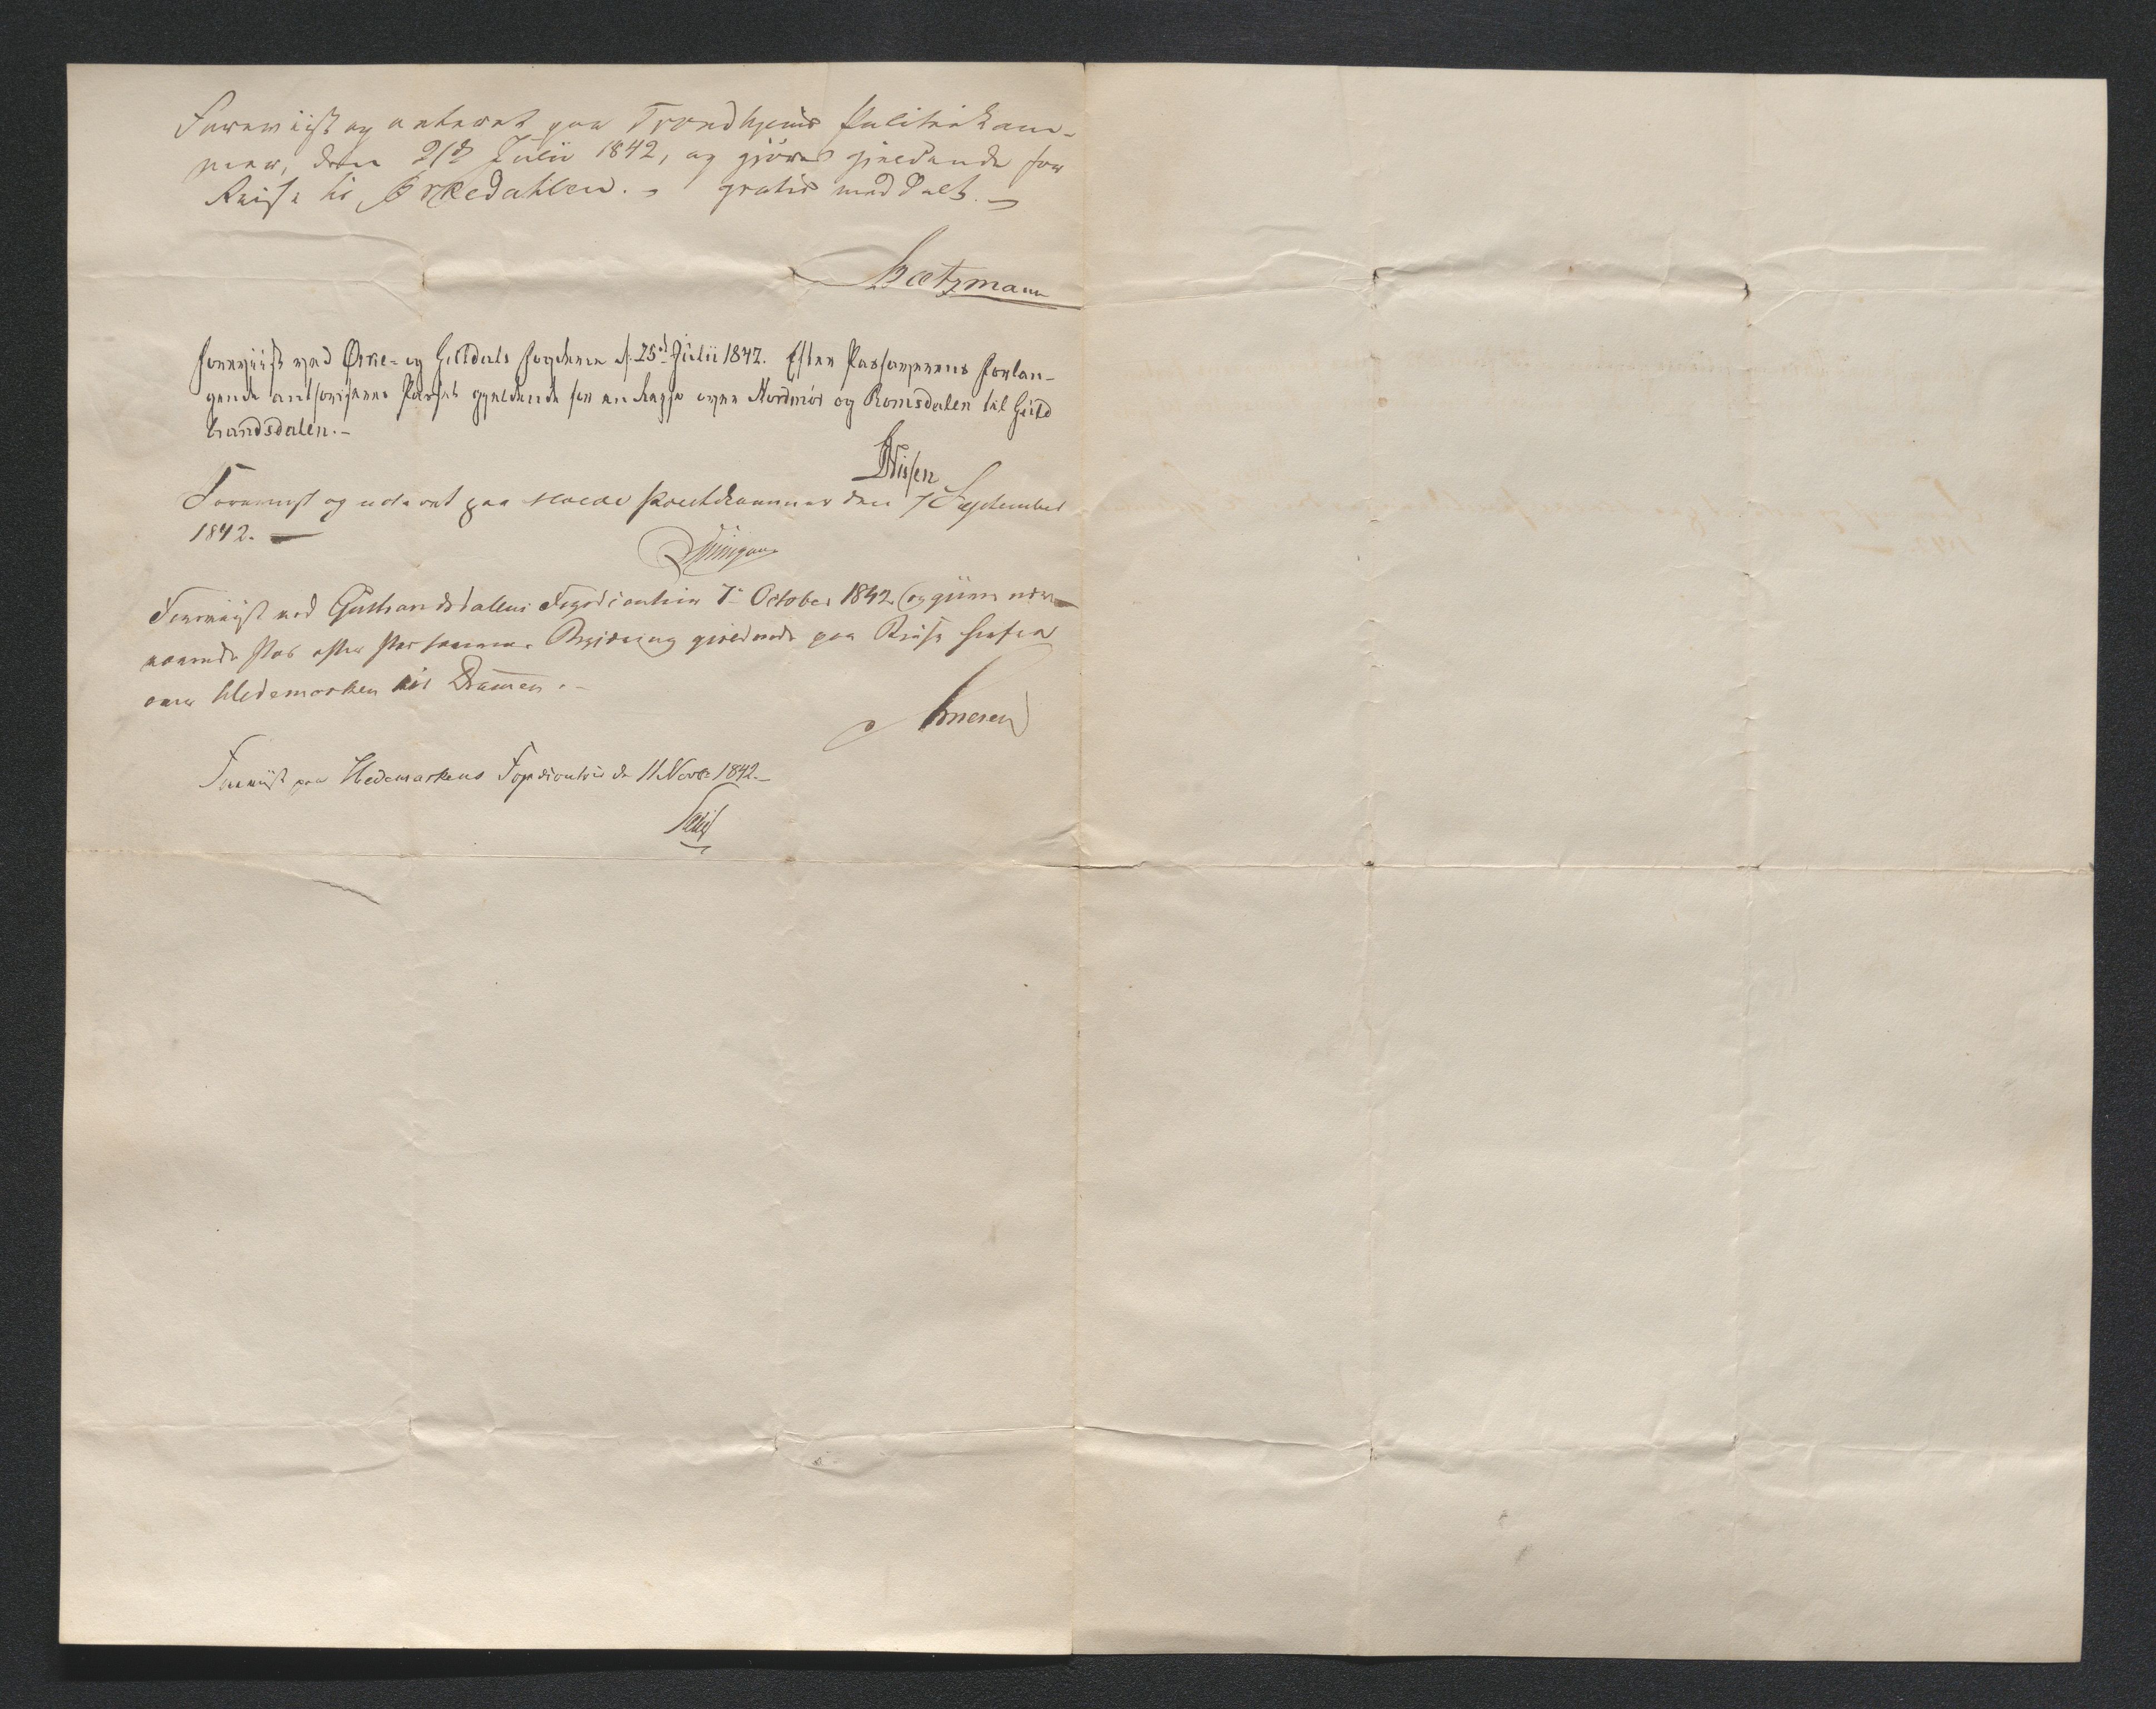 Foreviist og noteret paa Trondhjems Politiekam-
mer, den 21d Julii 1842, og gjöres gjeldende for
Reise til Örkedahlen. gratis meddelt.
Foreviist ved Örke- og Guldals Fogderie d. 25d Julii 1842. Efter Passagerens Forlan-
gende antegnes Passet gjeldende for en Reise over Nordmör og Romsdalen til Guld
brandsdalen.-
Nissen
Foreviist og noteret paa Molde Politikammer den 7 September
1842.
Foreviist ved Gulbrandsdalens Fogdicontoir 7de October 1842 og
Pas efter Begjering gjeldende paa Reise herfra
over Hedemarken til Drammen.-
Foreviist paa Hedemarkens Fogdicontoir d 11 Novbr 1842.-